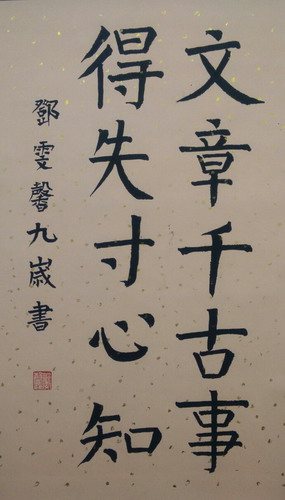 文章千古事
得失寸心知
鄧雯馨九歲書